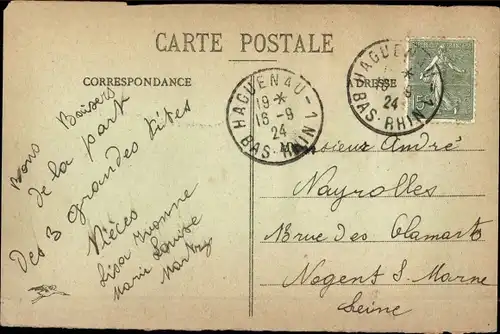 CARTE POSTALE
CORRESPONDANCE
ADRESSE
HAGUENAU-1
19 *
16-9
24
BAS-RHIN
HAGUENAU-1
16-9
24
BAS-RHIN
Bons Baisers
de la part
Des 3 grandes tites
Nièces
Lisa Yvonne
Marie Louise
Monsieur André
Nayrolles
13 rue des Clamarts
Nogent S. Marne
Seine